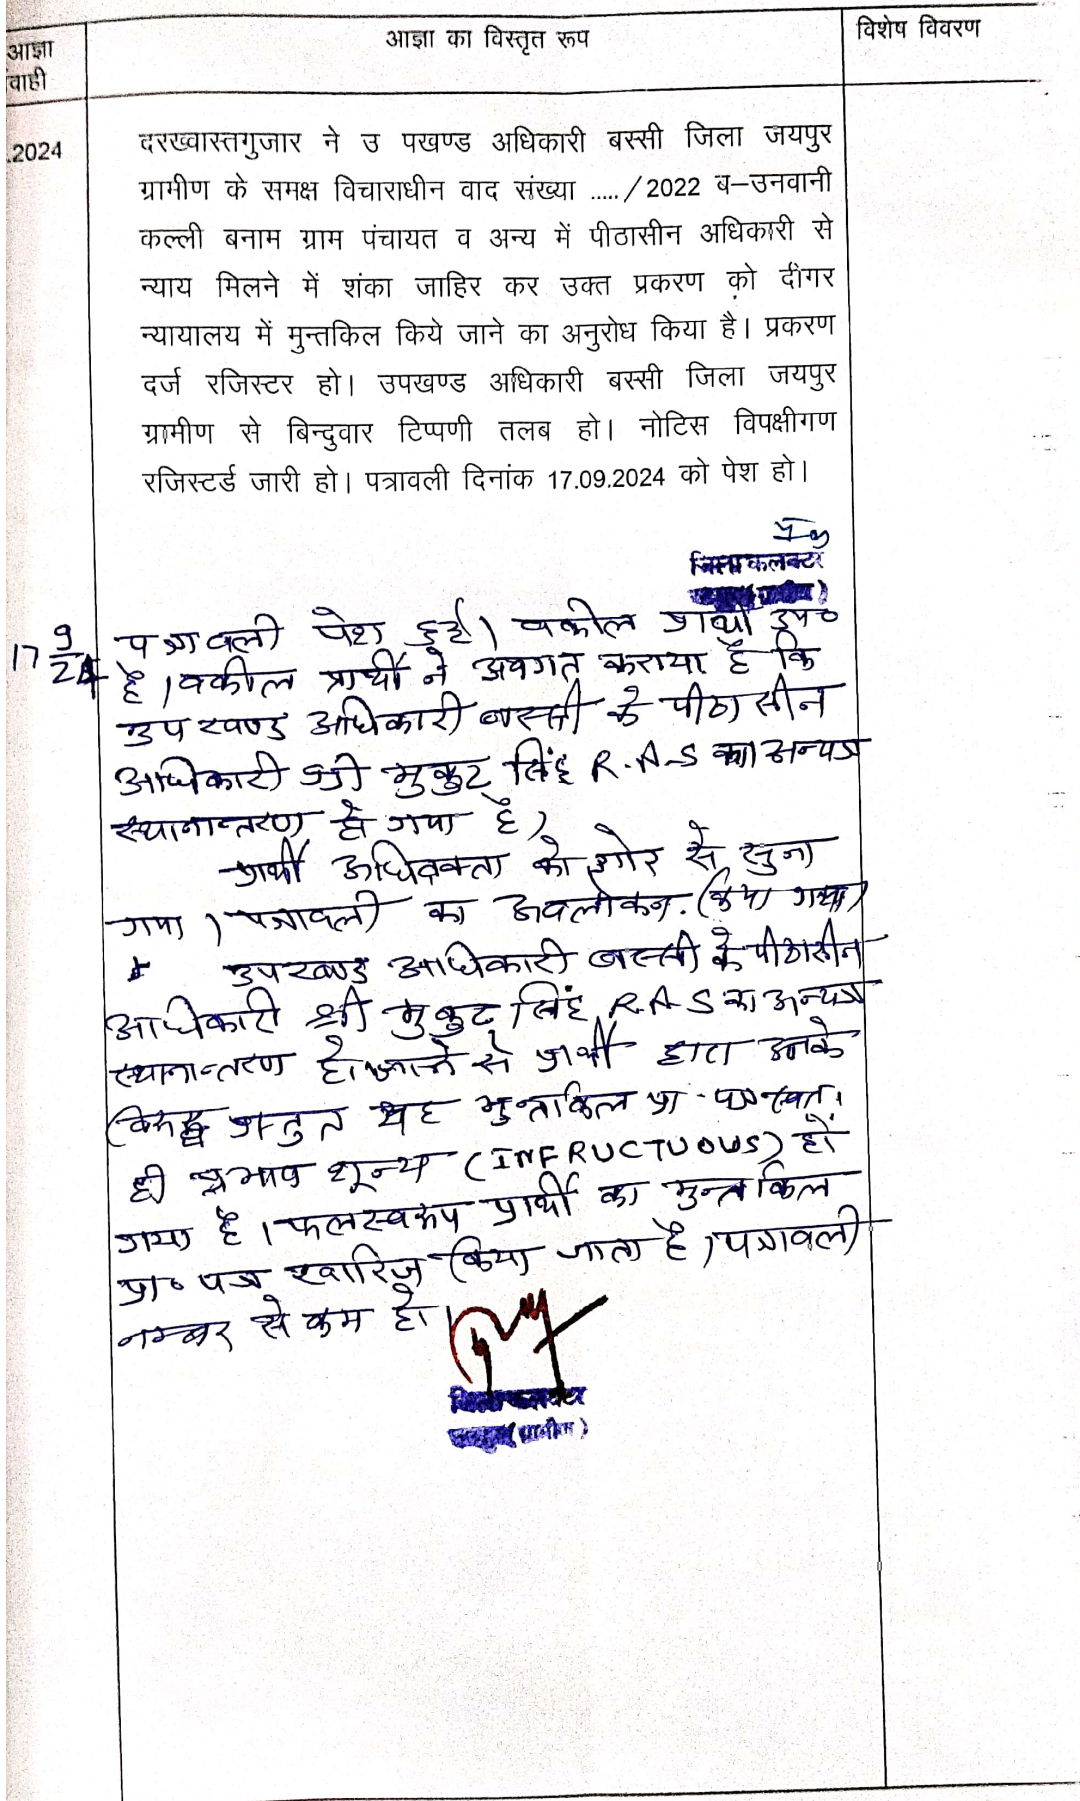 आज्ञा
वाही
आज्ञा का विस्तृत रूप
विशेष विवरण
.2024
दरख्वास्तगुजार ने उ पखण्ड अधिकारी बस्सी जिला जयपुर
ग्रामीण के समक्ष विचाराधीन वाद संख्या ...../2022 ब–उनवानी
कल्ली बनाम ग्राम पंचायत व अन्य में पीठासीन अधिकारी से
न्याय मिलने में शंका जाहिर कर उक्त प्रकरण को दीगर
न्यायालय में मुन्तकिल किये जाने का अनुरोध किया है। प्रकरण
दर्ज रजिस्टर हो। उपखण्ड अधिकारी बस्सी जिला जयपुर
ग्रामीण से बिन्दुवार टिप्पणी तलब हो। नोटिस विपक्षीगण
रजिस्टर्ड जारी हो। पत्रावली दिनांक 17.09.2024 को पेश हो।
जिला कलक्टर
17 9/24
पत्रावली पेश हुई। वकील प्रार्थी उप०
है। वकील प्रार्थी ने अवगत कराया है कि
उपखण्ड अधिकारी बस्सी के पीठासीन
अधिकारी श्री मुकुट सिंह R.A.S का अन्यत्र
स्थानान्तरण हो गया है।
प्रार्थी अधिवक्ता को गौर से सुना
गया। पत्रावली का अवलोकन किया गया।
उपखण्ड अधिकारी बस्सी के पीठासीन
अधिकारी श्री मुकुट सिंह R.A.S का अन्यत्र
स्थानान्तरण हो जाने से प्रार्थी द्वारा उनके
विरूद्ध प्रस्तुत यह मुन्तकिल प्रा. पत्र स्वतः
ही प्रभाव शून्य (INFRUCTUOUS) हो
गया है। फलस्वरूप प्रार्थी का मुन्तकिल
प्रा० पत्र खारिज किया जाता है। पत्रावली
नम्बर से कम हो।
जिला कलक्टर
(ग्रामीण)